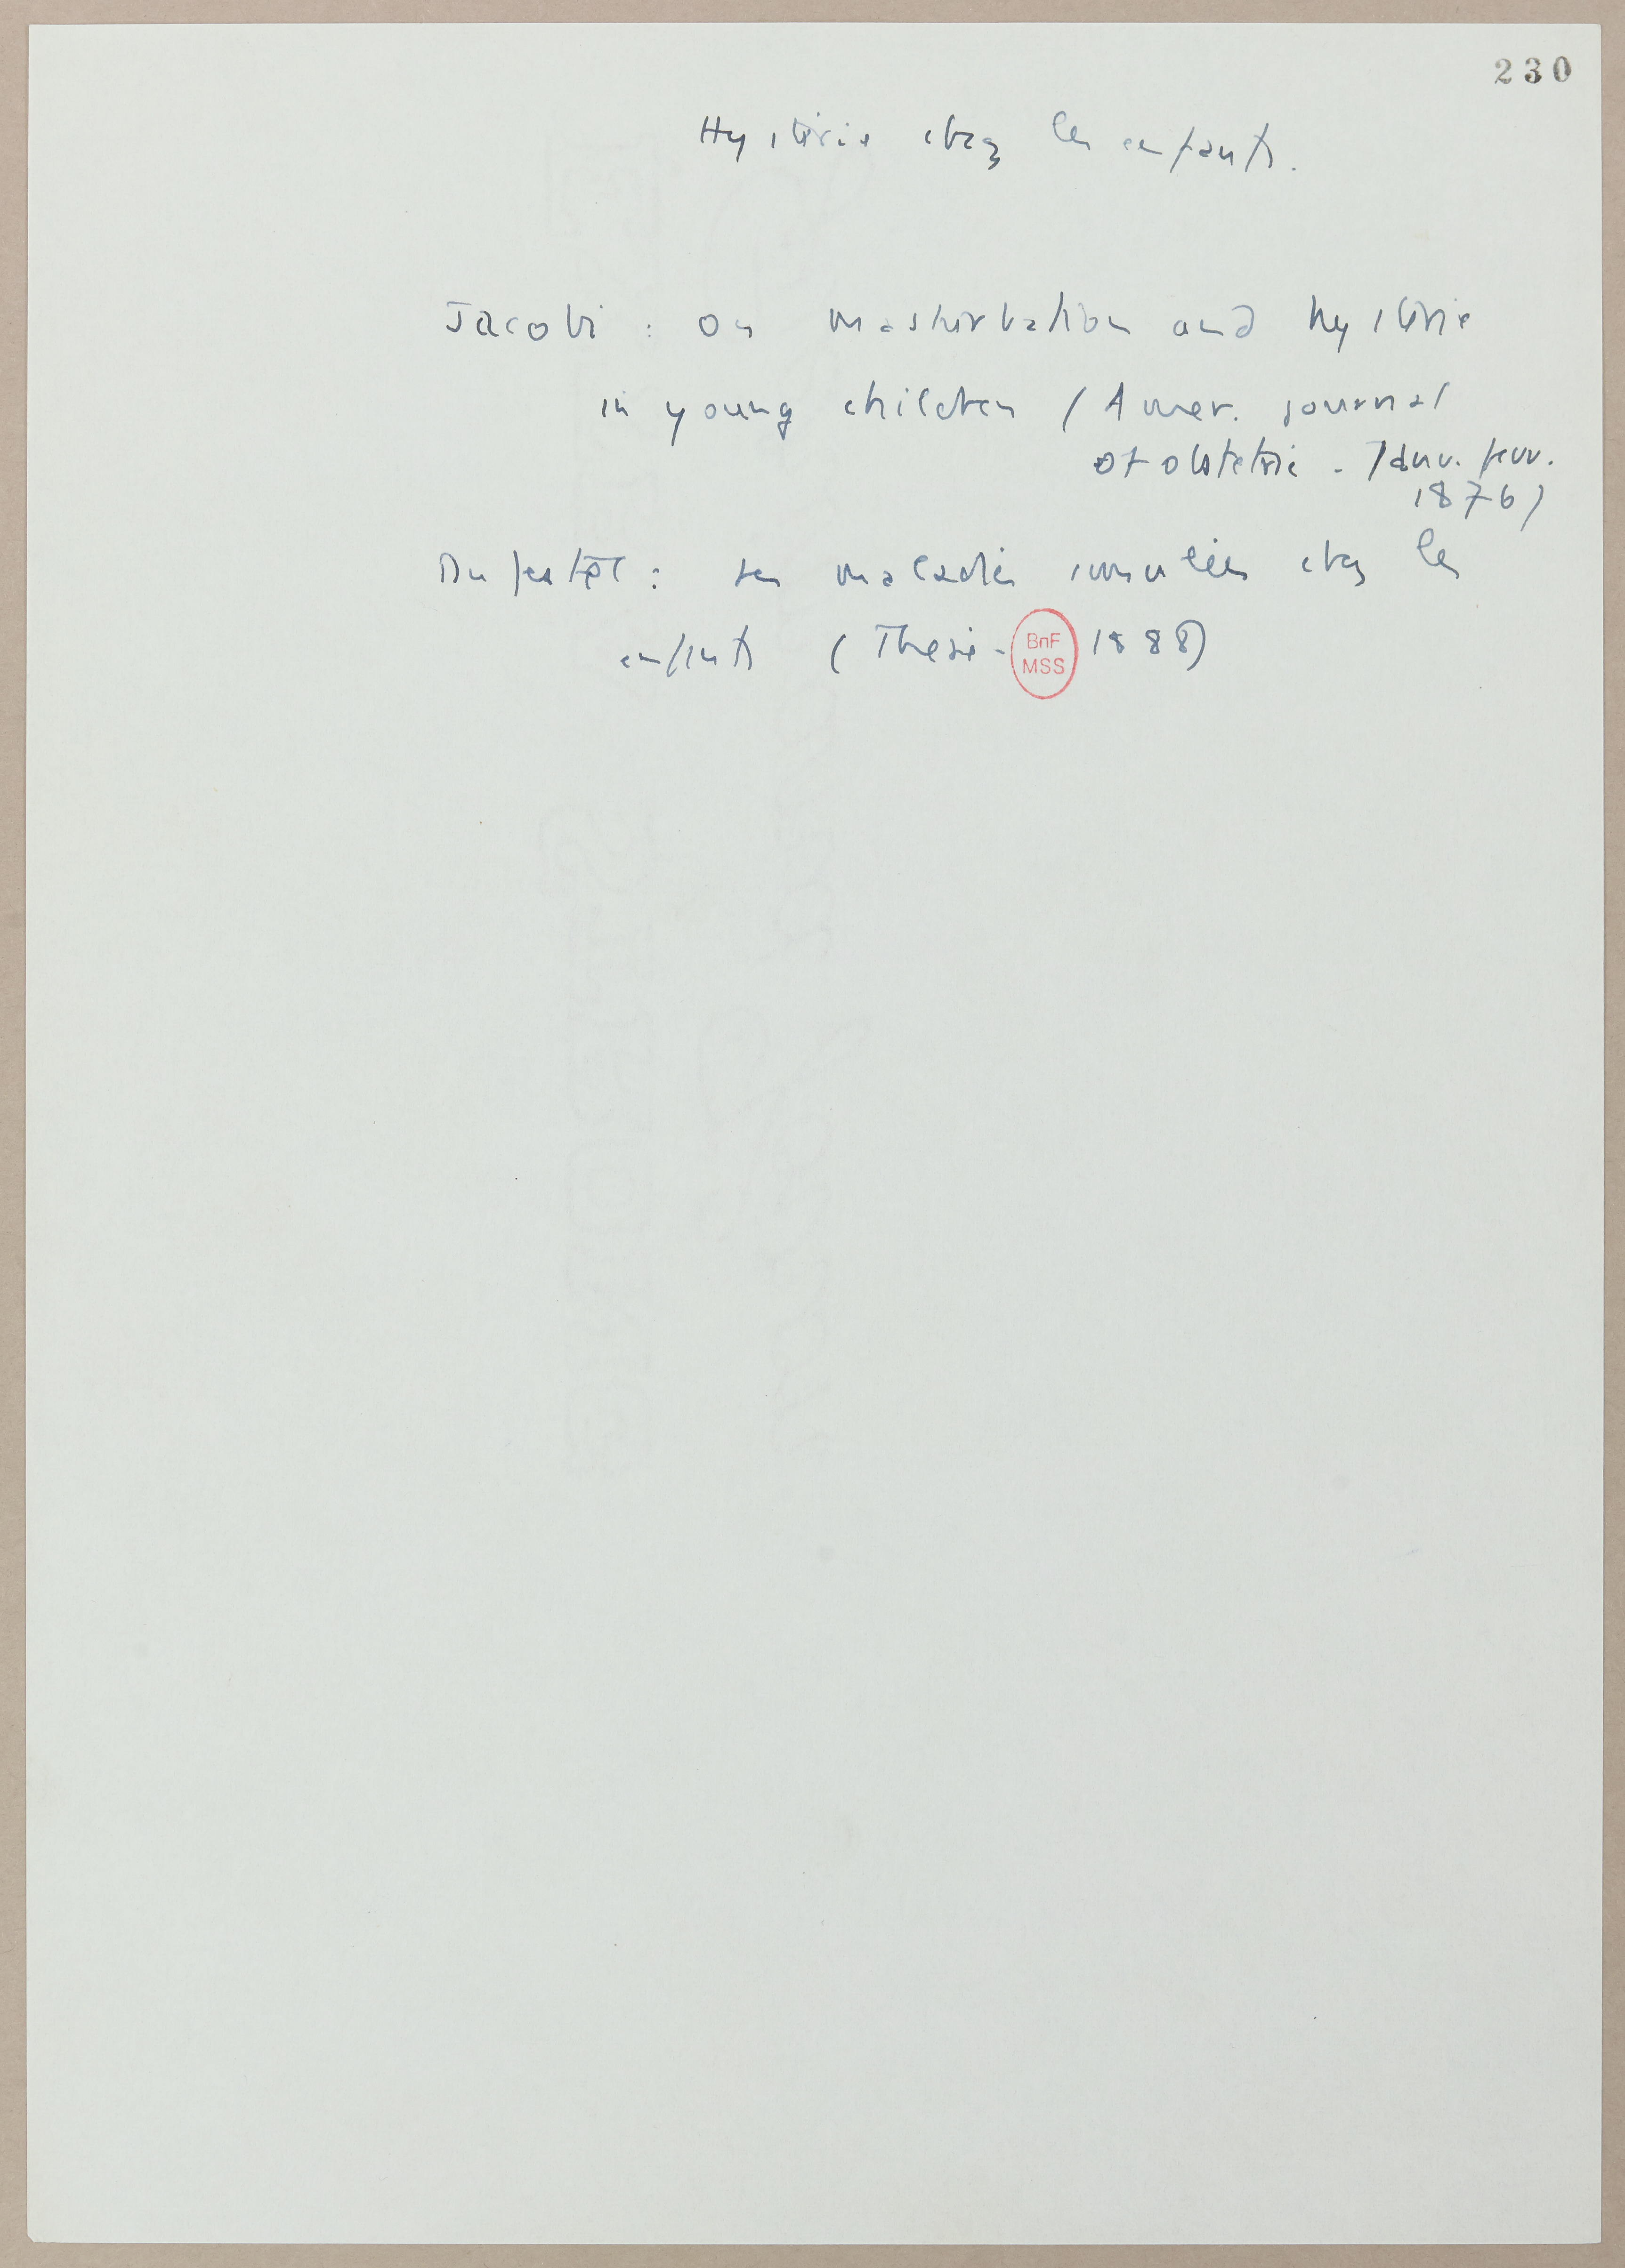 230
Hystérie chez les enfants.
Jacobi : On masturbation and hystérie
in young children (Amer. journal
of obstetric - Janv. fevr.
1876)
Dufestel : Des maladies simulées chez les
enfants (Thèse - 1888)
BnF
MSS